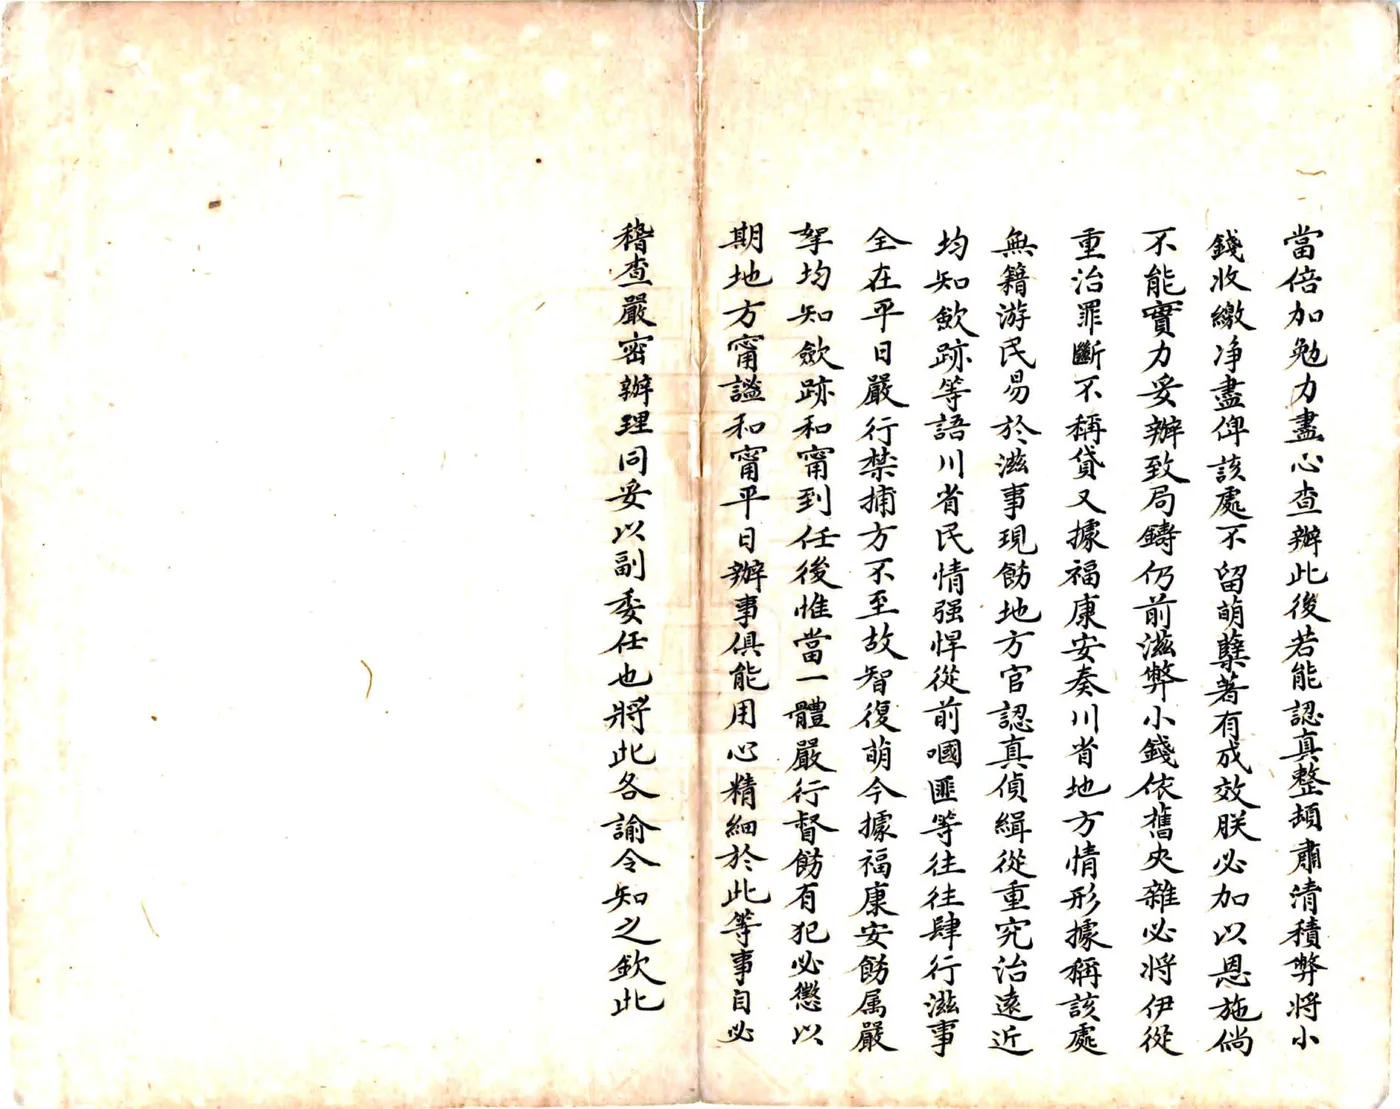 當倍加勉力盡心查辦此後若能認真整頓肅清積弊將小
錢收繳净盡俾該處不留萌蘖著有成效朕必加以恩施倘
不能實力妥辦致局鑄仍前滋弊小錢依舊夾雜必將伊從
重治罪斷不稱貸又據福康安奏川省地方情形據稱該處
無籍游民易於滋事現飭地方官認真偵緝從重究治遠近
均知歛跡等語川省民情强悍從前嘓匪等往往肆行滋事
全在平日嚴行禁捕方不至故智復萌今據福康安飭属嚴
拏均知歛跡和甯到任後惟當一體嚴行督飭有犯必懲以
期地方甯謐和甯平日辦事俱能用心精細於此等事自必
稽查嚴密辦理同妥以副委任也將此各諭令知之欽此